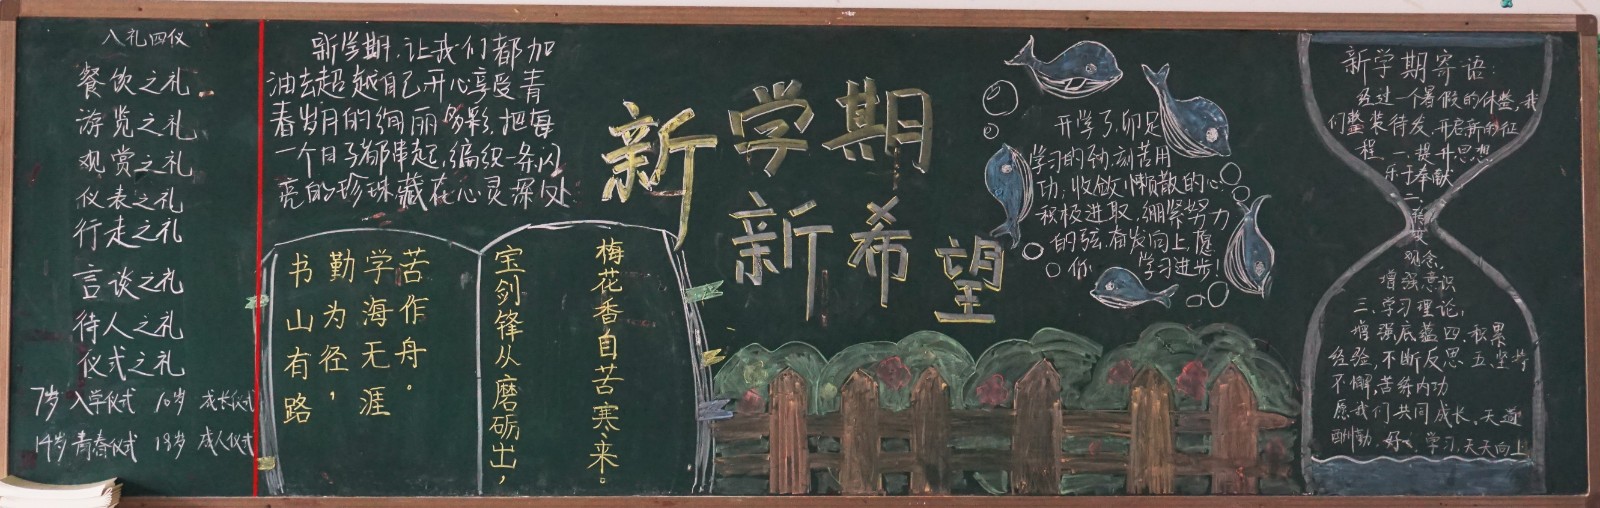 八礼四仪
餐饮之礼
游览之礼
观赏之礼
仪表之礼
行走之礼
言谈之礼
待人之礼
仪式之礼
7岁入学仪式 10岁 成长仪式
14岁青春仪式 18岁 成人仪式
新学期,让我们都加
油去超越自己开心享受青
春岁月的绚丽多彩,把每
一个日子都串起,编织一条闪
亮的珍珠藏在心灵深处
书山有路
勤为径,
学海无涯
苦作舟。
宝剑锋从磨砺出,
梅花香自苦寒来。
新学期
新希望
开学了,卯足
学习的劲,刻苦用
功,收敛懒散的心,
积极进取,绷紧努力
的弦,奋发向上,愿
你 学习进步!
新学期寄语:
经过一个暑假的休整,我
们整装待发,开启新的征
程 一、提升思想
乐于奉献
二、
转
变
观念,
增强意识
三、学习理论,
增强底蕴 四、积累
经验,不断反思 五、坚持
不懈,苦练内功
愿我们共同成长、天道
酬勤,好好学习,天天向上